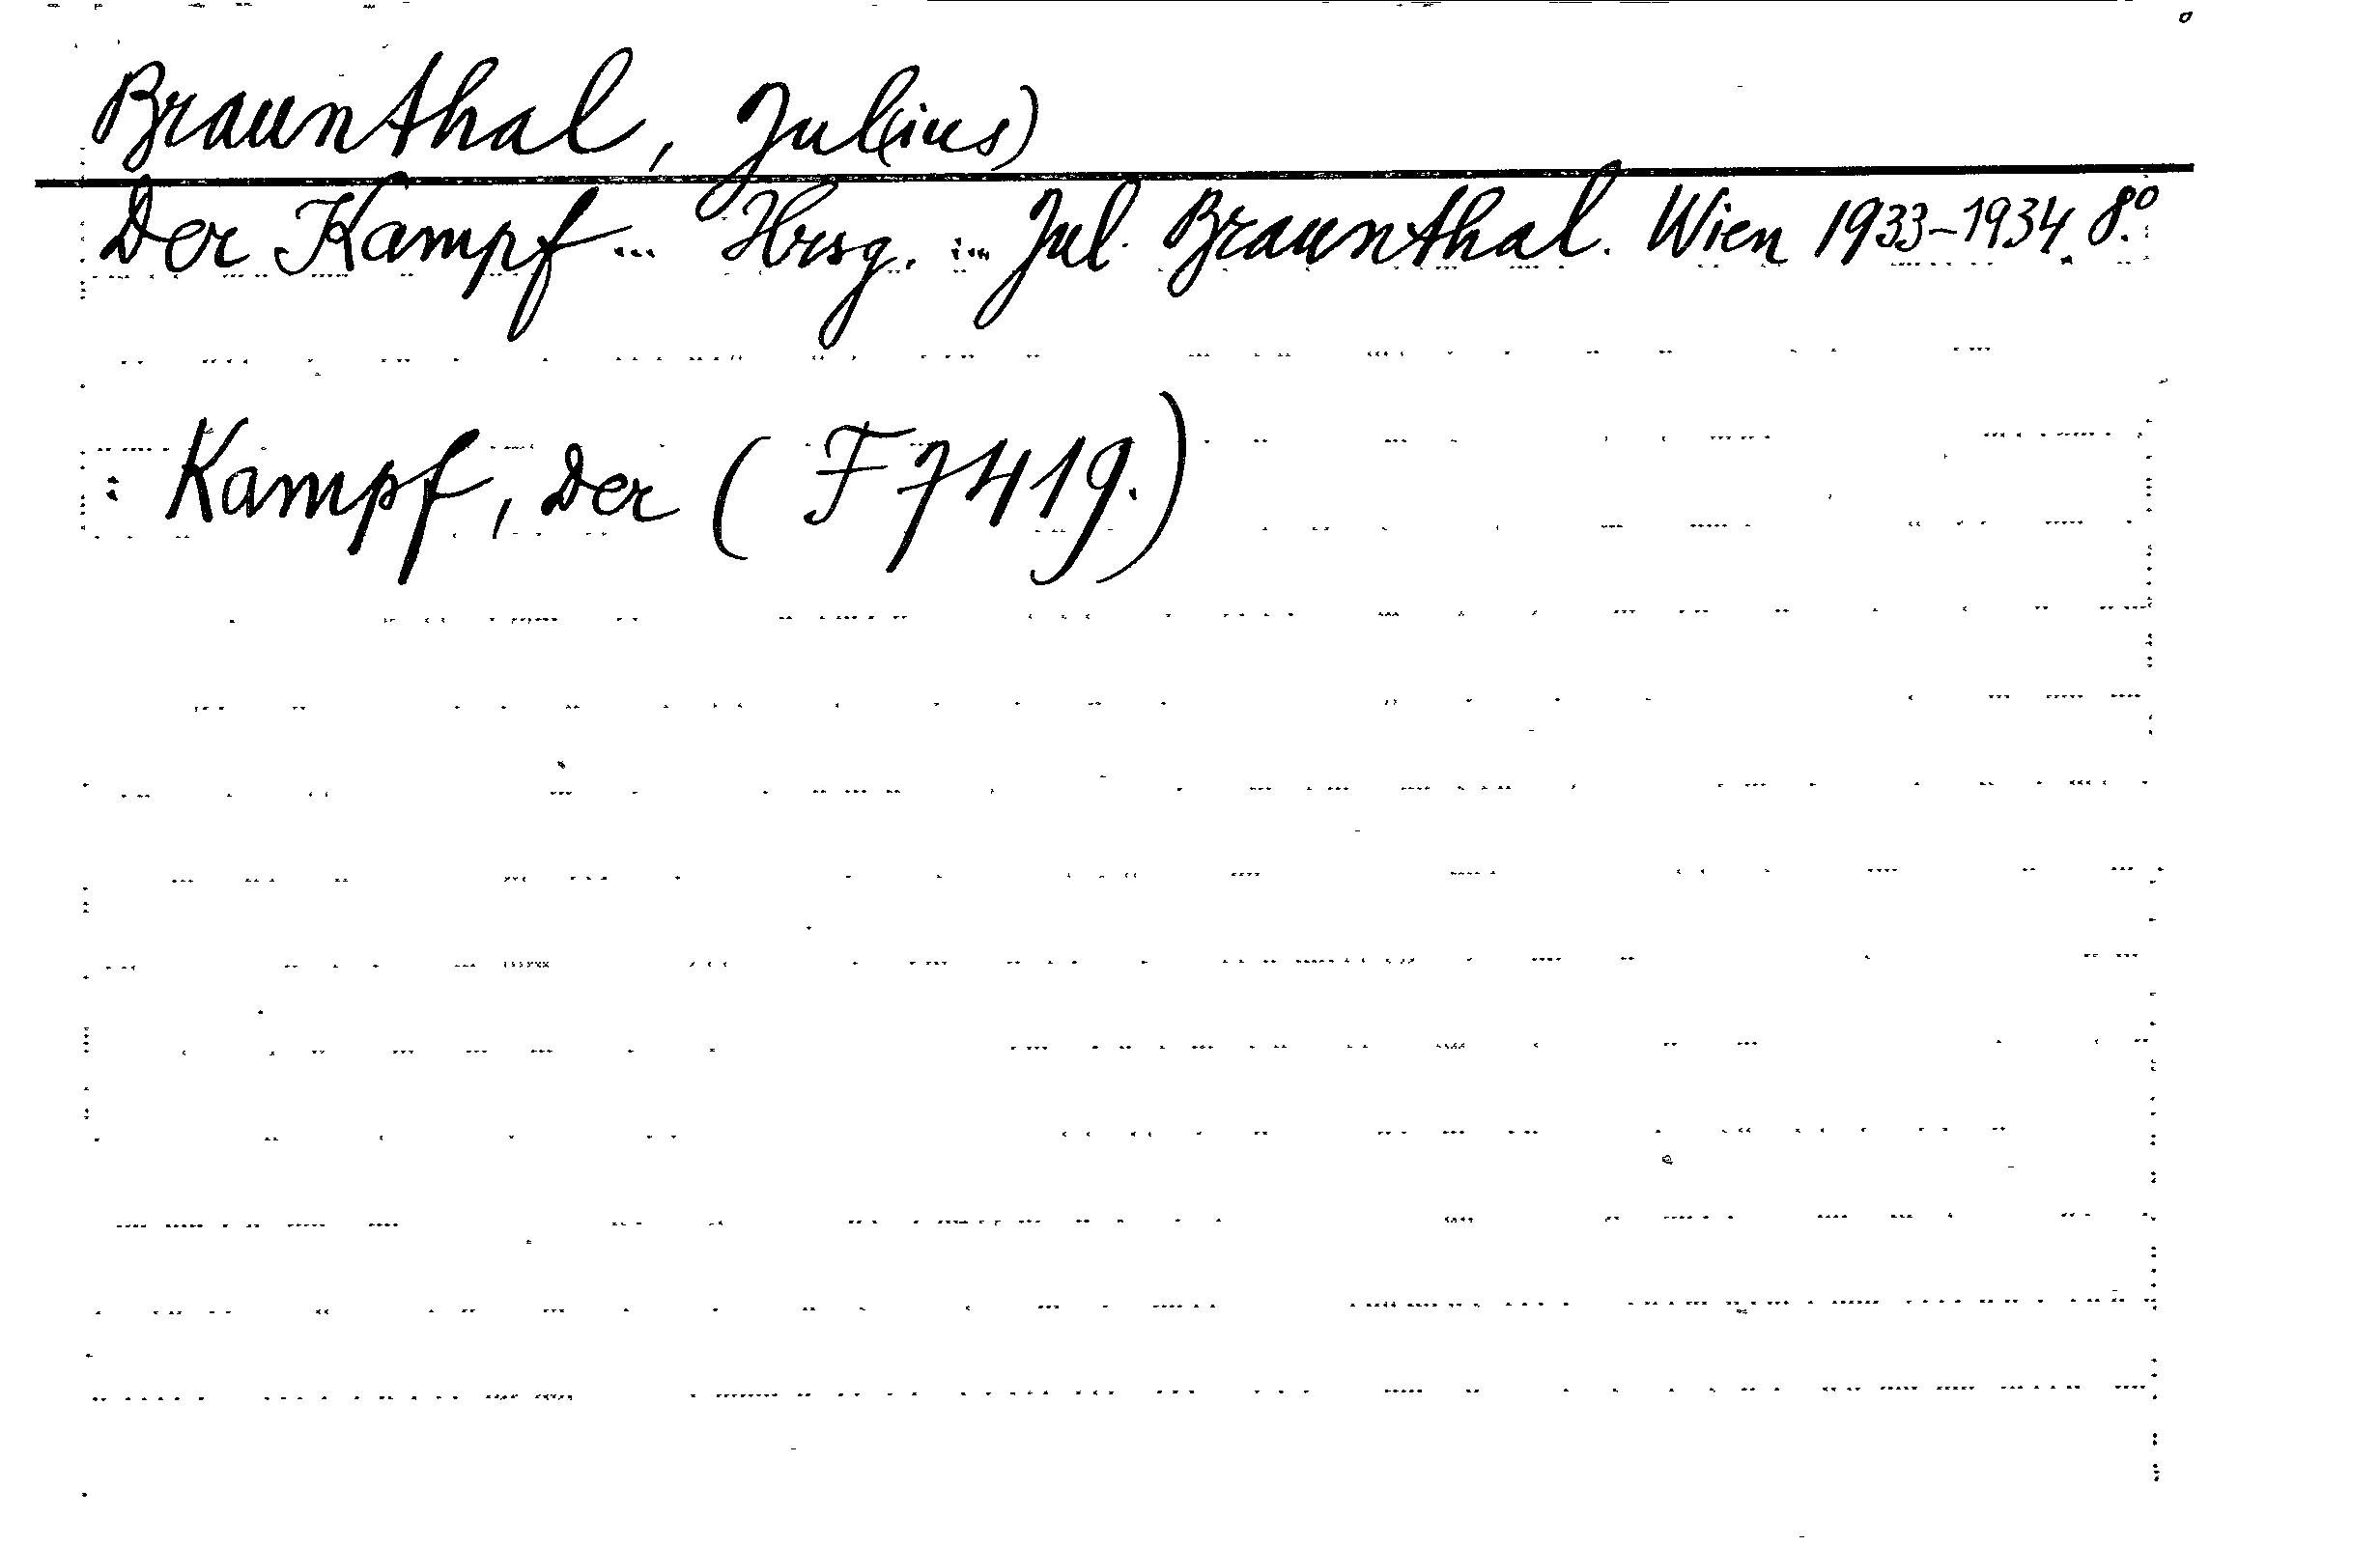 Braunthal, Jul(ius)
Der Kampf ... Hrsg. ... Jul. Braunthal. Wien 1933-1934. 8.º
: Kampf, Der ( F 7419.)